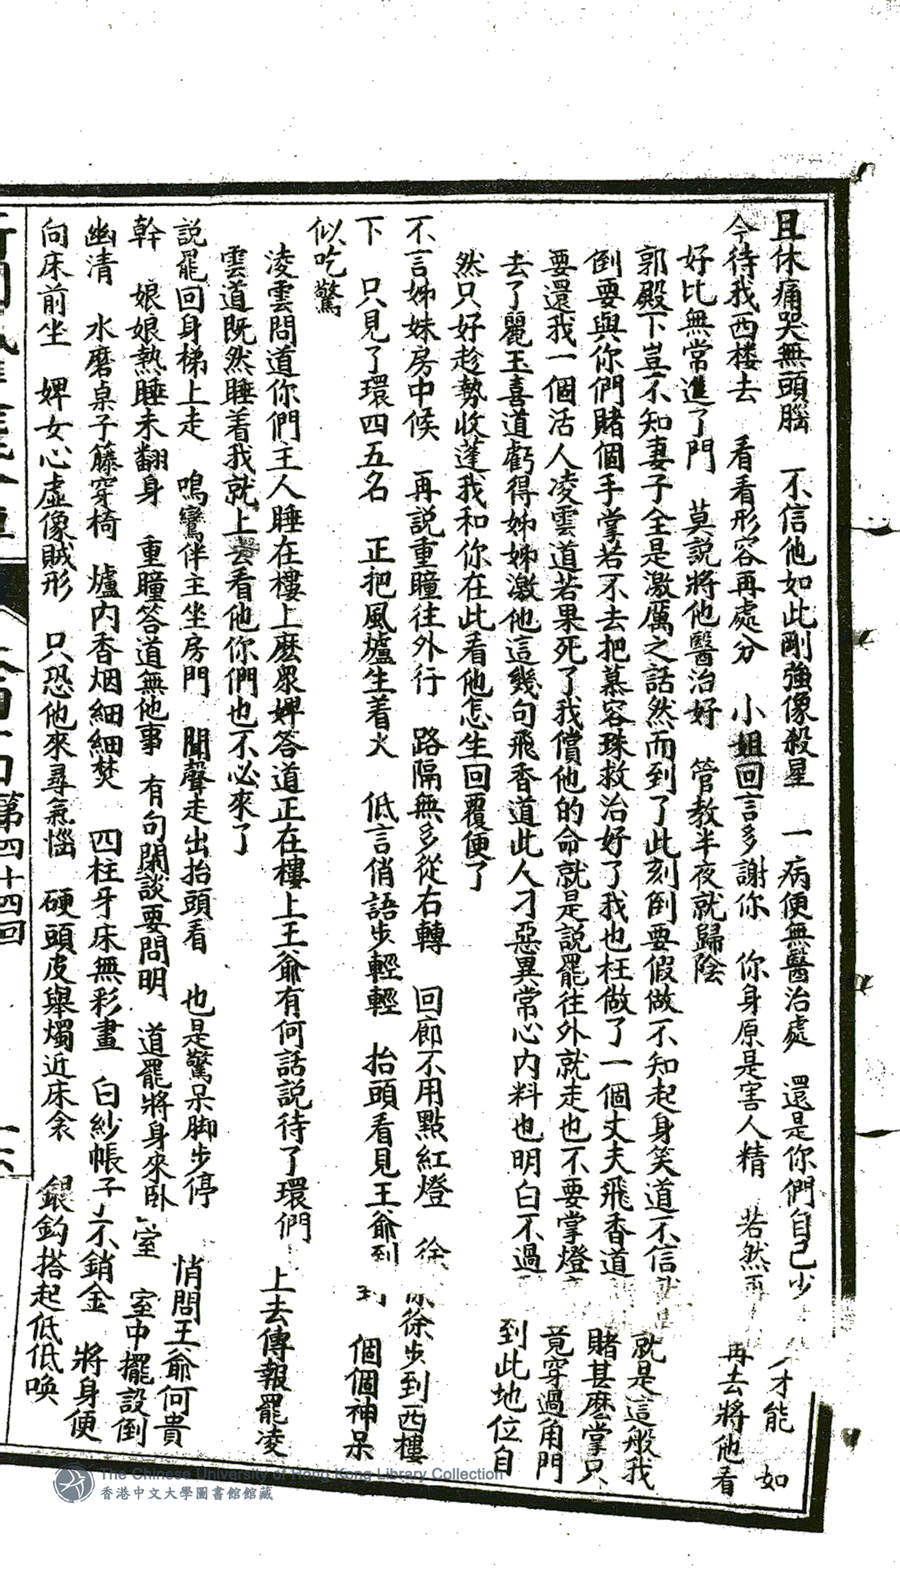 且休痛哭無頭腦　不信他如此剛強像殺星　一病便無醫治處　還是你們自己少才能　如
今待我西楼去　看看形容再處分　小姐回言多謝你　你身原是害人精　若然再去將他看
好比無常進了門　莫說將他醫治好　管教半夜就歸陰
郭殿下豈不知妻子全是激厲之話然而到了此刻倒要假做不知起身笑道不信就是這般我
倒要與你們賭個手掌若不去把慕容珠救治好了我也枉做了一個丈夫飛香道賭甚麽掌只
要還我一個活人凌雲道若果死了我償他的命就是說罷往外就走也不要掌燈竟穿過角門
去了麗玉喜道虧得姊姊激他這幾句飛香道此人刁惡異常心內料也明白不過到此地位自
然只好趁勢收蓬我和你在此看他怎生回覆便了
不言姊妹房中候　再說重瞳往外行　路隔無多從右轉　回廊不用點紅燈　徐徐步到西樓
下　只見了環四五名　正把風爐生着火　低言俏語步輕輕　抬頭看見王爺到　個個神呆
似吃驚
凌雲問道你們主人睡在樓上麽衆婢答道正在樓上王爺有何話說待了環們上去傳報罷凌
雲道既然睡着我就上去看他你們也不必來了
說罷回身梯上走　鳴鸞伴主坐房門　聞聲走出抬頭看　也是驚呆脚步停　悄問王爺何貴
幹　娘娘熱睡未翻身　重瞳答道無他事　有句閑談要問明　道罷將身來臥室　室中擺設倒
幽清　水磨桌子籐穿椅　爐內香烟細細焚　四柱牙床無彩畫　白紗帳子不銷金　將身便
向床前坐　婢女心虛像賊形　只恐他來尋氣惱　硬頭皮舉燭近床衾　銀鈎搭起低低喚
第四十四回
The Chinese University of Hong Kong Library Collection
香港中文大學圖書館館藏